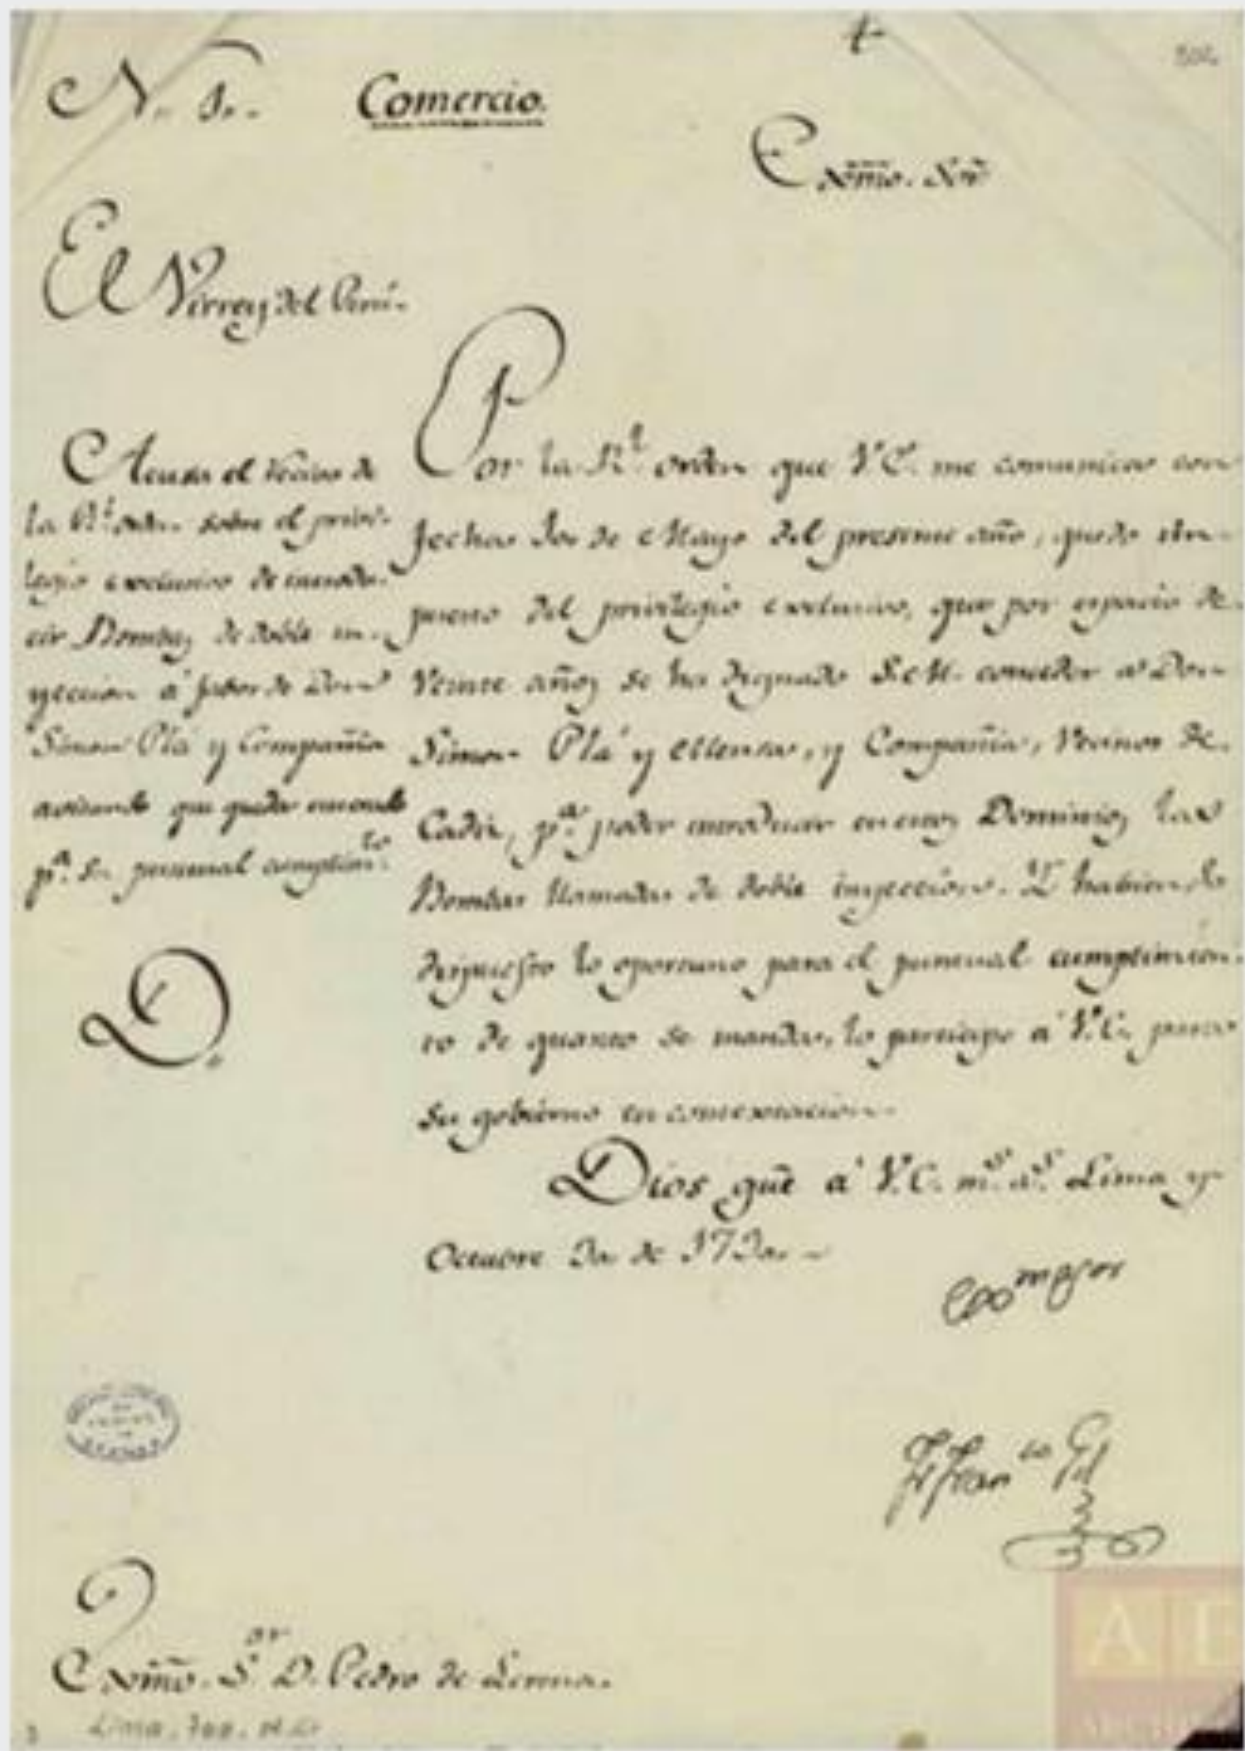 Comercio.
Exmo. Sor
El Virrey del Perú.
Acusa el recivo de
la Rl. orden sobre el privi-
legio exclusivo de introdu-
cir Bombas de doble in-
yeccion á fabor de Don
Simon Plá y Compañia
avisando que queda
pa. su puntual cumplimto.
Por la Rl. orden que V.E. me comunica con
fecha dos de Mayo del presente año, quedo im-
puesto del privilegio exclusivo, que por espacio de
Veinte años se ha dignado S.M. conceder a Don
Simon Plá y Mensa, y Compañia, Vecinos de
Cadiz, pa. poder introducir en estos Dominios las
Bombas llamadas de doble inyeccion. Y haviendo
dispuesto lo oportuno para el puntual cumplimien-
to de quanto se manda, lo participo á V.E. para
su gobierno en contextacion.
Dios gue á V.E. ms. as. Lima y
Octubre de
Exmo Sor
Fr Franco Gil
D.
Exmo. Sor. D. Pedro de Lerena.
Lima, 700, N.